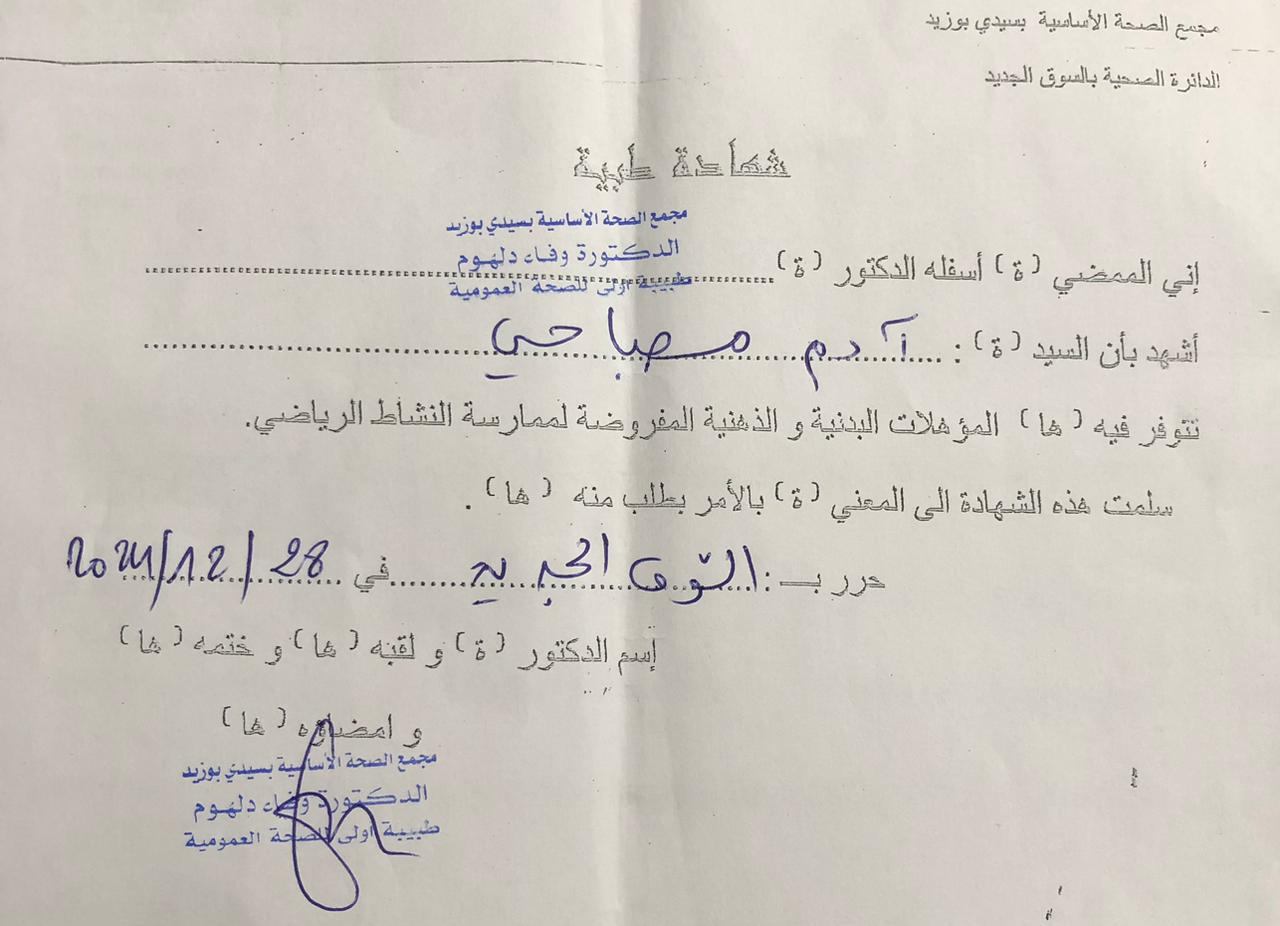 مجمع الصحة الأساسية بسيدي بوزيد
الدائرة الصحية بالسوق الجديد
شهادة طبية
مجمع الصحة الأساسية بسيدي بوزيد
الدكتورة وفاء دلهوم
طبيبة أولى للصحة العمومية
إني الممضي (ة) أسفله الدكتور (ة)
أشهد بأن السيد (ة) : آدم مصباحي
تتوفر فيه (ها) المؤهلات البدنية و الذهنية المفروضة لممارسة النشاط الرياضي.
سلمت هذه الشهادة الى المعني (ة) بالأمر بطلب منه (ها) .
حرر بـ : السّوق الجديد في 28/12/2024
إسم الدكتور (ة) و لقبه (ها) و ختمه (ها)
و امضاؤه (ها)
مجمع الصحة الأساسية بسيدي بوزيد
الدكتورة وفاء دلهوم
طبيبة أولى للصحة العمومية